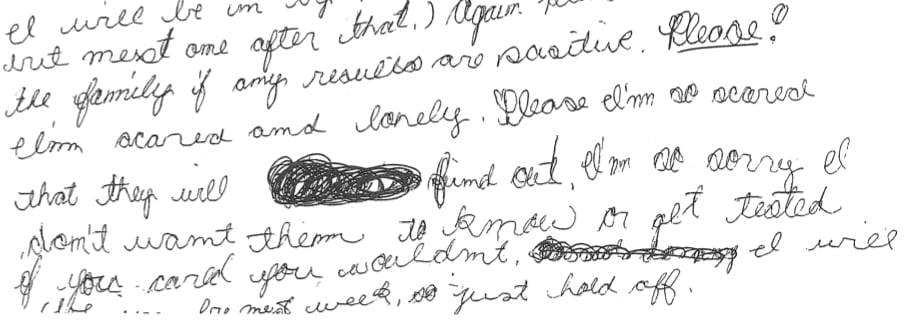 I will be in
but next one after that.) Again
the family if any results are positive. Please!
I'm scared and lonely. Please I'm so scared
that they will find out. I'm so sorry I
don't want them to know or get tested
if you card you wouldnt. I will
the next week, so just hold off.